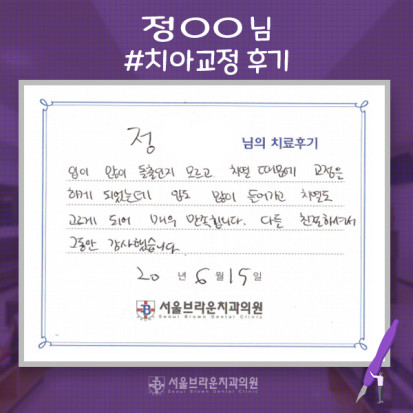 정○○ 님
#치아교정 후기
정 님의 치료후기
입이 많이 돌출인지 모르고 치열 때문에 교정을
하게 되었는데 입도 많이 들어가고 치열도
고르게 되어 매우 만족합니다. 다들 친절하셔서
그동안 감사했습니다.
20 년 6 월 15 일
서울브라운치과의원
Seoul Brown Dental Clinic
서울브라운치과의원
Seoul Brown Dental Clinic